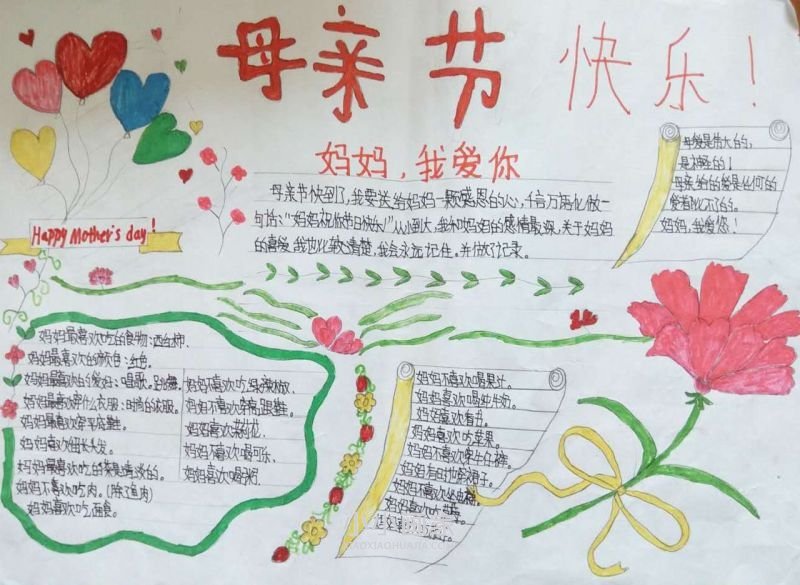 母亲节 快乐！
妈妈，我爱你
母亲节快到了，我要送给妈妈一颗感恩的心，千言万语化做一
句话："妈妈祝你节日快乐！"从小到大，我和妈妈的感情最深，关于妈妈
的喜爱，我也比较清楚，我会永远记住。并做了记录。
母爱是伟大的，
是神圣的！
母亲给的爱是任何的
爱都比不了的。
妈妈，我爱您！
Happy Mother's day!
妈妈最喜欢吃的食物：西红柿.
妈妈最喜欢的颜色：红色.
妈妈最喜欢的爱好：唱歌。跳舞.
妈妈最喜欢穿什么衣服：时尚的衣服。
妈妈最喜欢穿平底鞋。
妈妈喜欢留长头发。
妈妈最喜欢吃的菜是清淡的。
妈妈不喜欢吃肉。(除了鱼肉)
妈妈喜欢吃面食。
妈妈喜欢吃辣椒.
妈妈不喜欢穿高跟鞋。
妈妈喜欢茉莉花.
妈妈不喜欢喝可乐.
妈妈喜欢喝粥.
妈妈不喜欢喝果汁。
妈妈喜欢喝纯牛奶。
妈妈喜欢看书.
妈妈喜欢吃苹果。
妈妈不喜欢穿牛仔裤。
妈妈有时也穿裙子。
妈妈不喜欢
妈妈喜欢吃
XIAOXIAOHUAJIA.COM